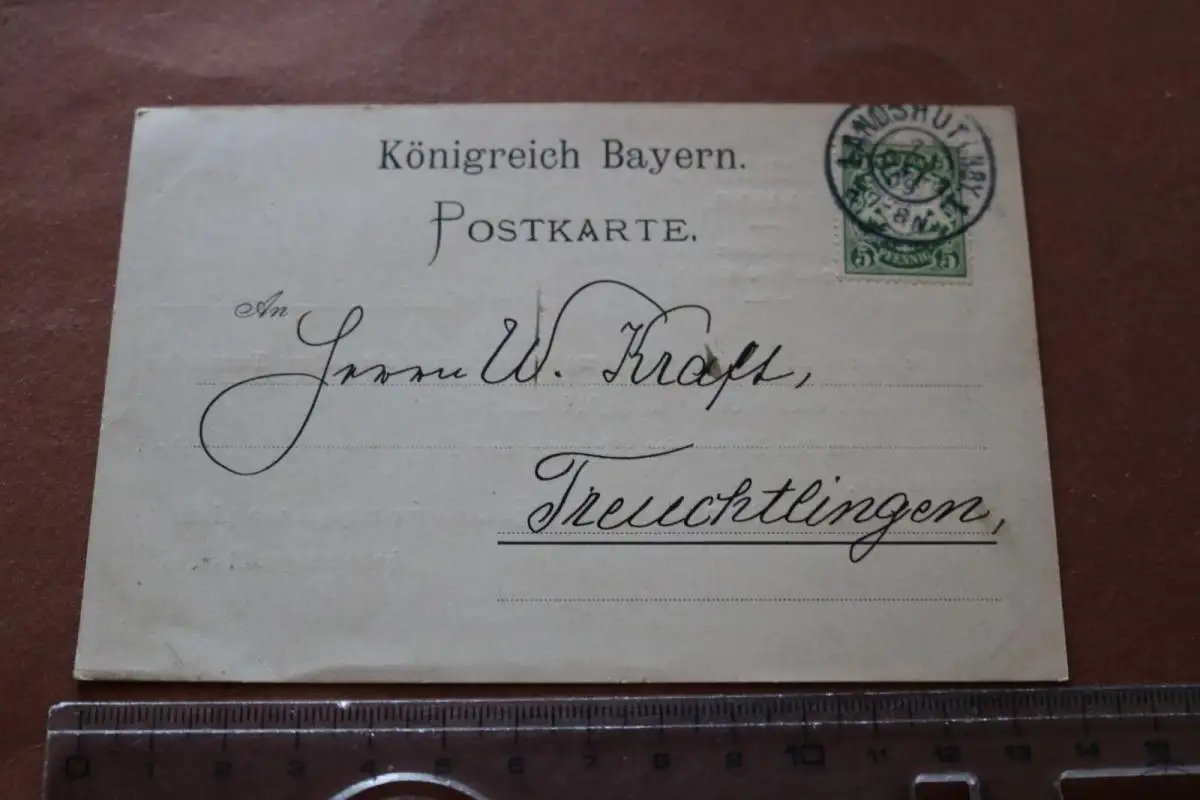 Königreich Bayern.
POSTKARTE.
LANDSHUT 1. BAY.
09
7-8 N
5 PFENNIG 5
An
Herrn W. Kraft,
Treuchtlingen,
0 1 2 3 4 5 6 7 8 9 10 11 12 13 14 15